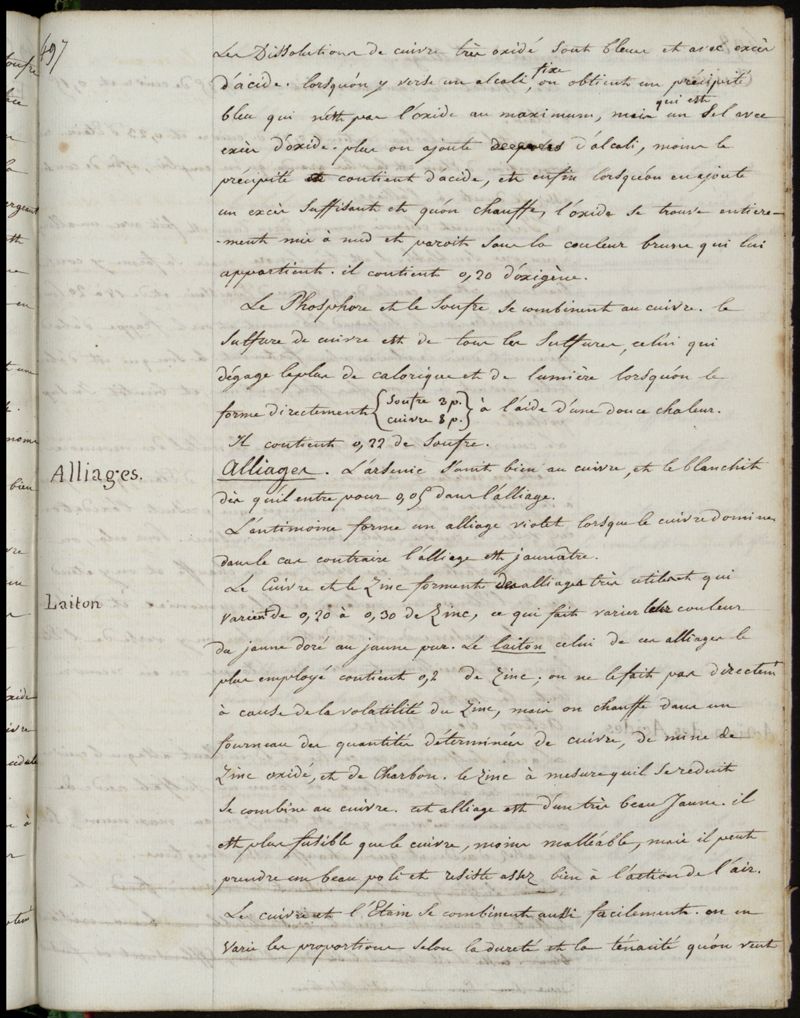 497
Les Dissolutions de cuivre très oxidé sont bleues et avec excès
d'acide. lorsqu'on y verse un alcali fixe, on obtient un précipité
bleu qui n'est pas l'oxide au maximum, mais qui est un Sel avec
excès d'oxide. plus on ajoute d'alcali, moins le
précipité contient d'acide, et enfin lorsqu'on en ajoute
un excès suffisant et qu'on chauffe, l'oxide se trouve entiere-
-ment mis à nud et paroit sous la couleur brune qui lui
appartient. il contient 0,20 d'oxigène.
Le Phosphore et le Soufre se combinent au cuivre. le
Sulfure de cuivre est de tous les Sulfures, celui qui
dégage le plus de calorique et de lumière lorsqu'on le
forme directement { Soufre 3 p. cuivre 8 p. } à l'aide d'une douce chaleur.
Il contient 0,22 de Soufre.
Alliages.
Alliages. L'arsenic s'unit bien au cuivre, et le blanchit
dès qu'il entre pour 0,05 dans l'alliage.
L'antimoine forme un alliage violet lorsque le cuivre domine
dans le cas contraire l'alliage est jaunâtre.
Laiton
Le Cuivre et le Zinc forment des alliages très utiles et qui
varient de 0,20 à 0,30 de Zinc, ce qui fait varier leur couleur
du jaune doré au jaune pur. Le laiton celui de ces alliages le
plus employé contient 0,2 de Zinc; on ne le fait pas directemt
à cause de la volatilité du Zinc, mais on chauffe dans un
fourneau des quantités déterminées de cuivre, de mine de
Zinc oxidé, et de Charbon. le Zinc à mesure qu'il se reduit
se combine au cuivre. cet alliage est d'un très beau Jaune. il
est plus fusible que le cuivre, moins malléable, mais il peut
prendre un beau poli et resiste assez bien à l'action de l'air.
Le cuivre et l'Etain se combinent aussi facilement. on en
varie les proportions selon la dureté et la ténacité qu'on veut